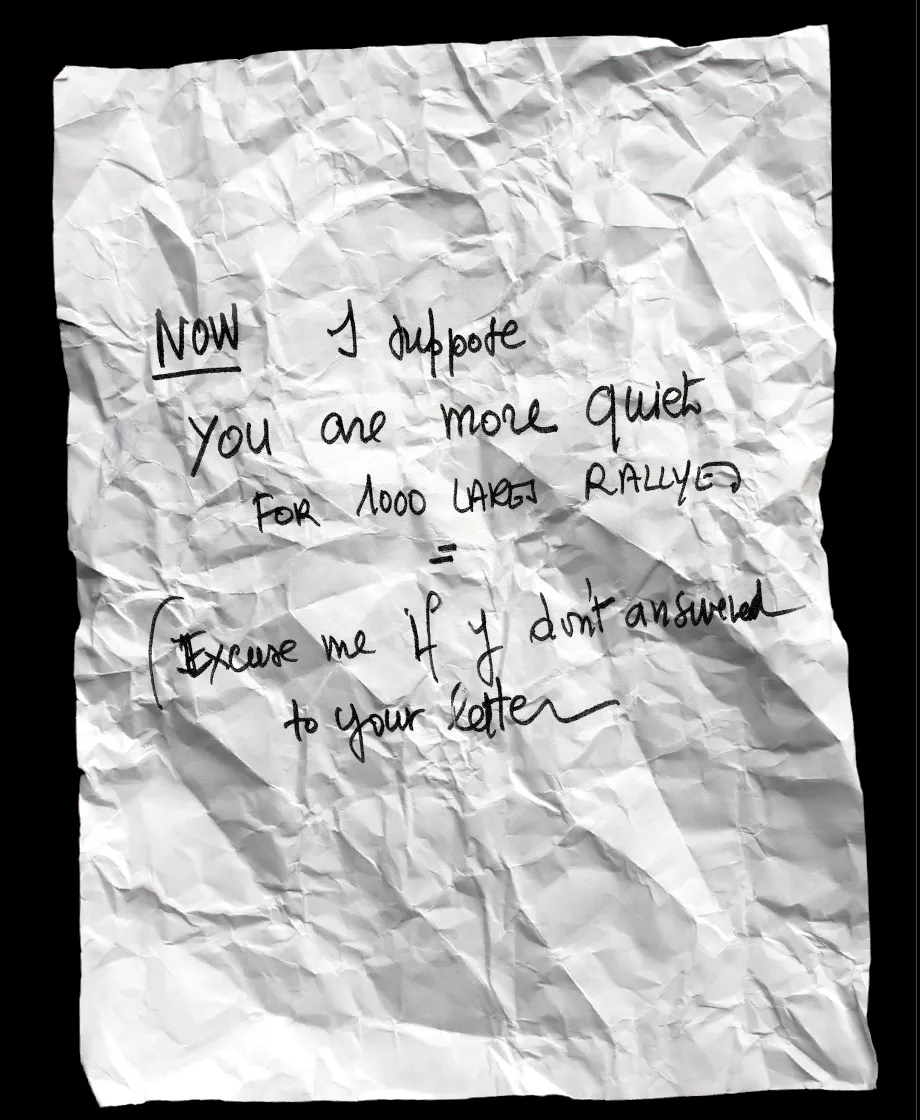 NOW I suppose
you are more quiet
FOR 1000 LAKES RALLYES
=
(Excuse me if y don't answered
to your letter